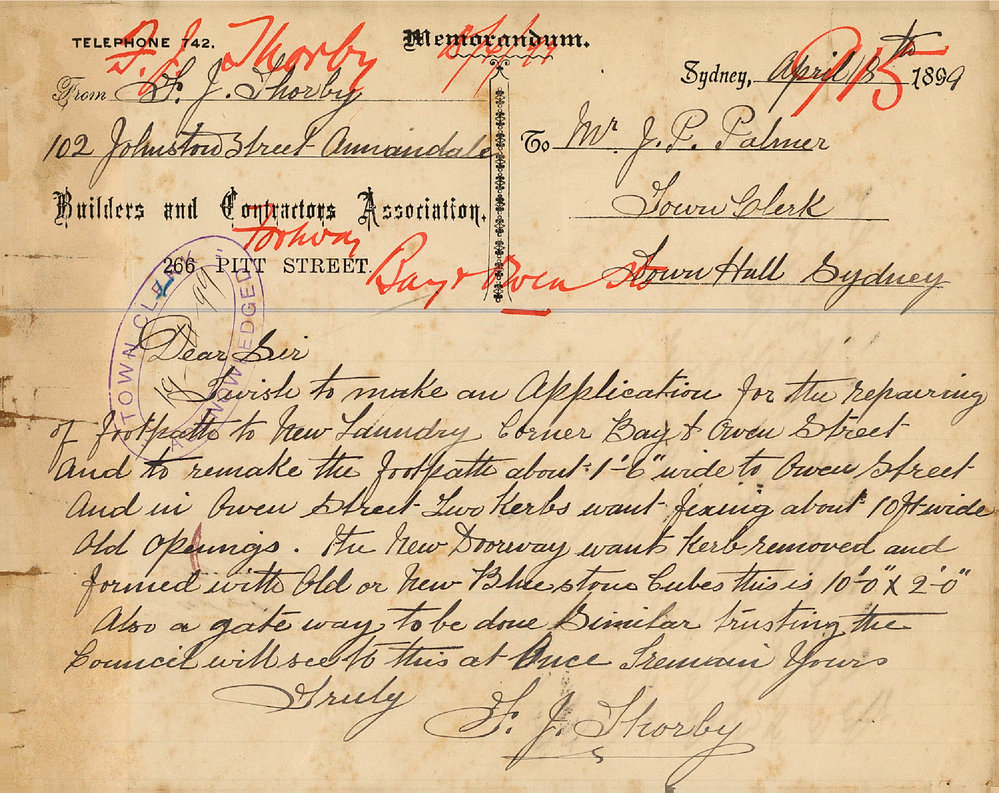 TELEPHONE 742.
Memorandum.
F. J. Thorby
Sydney, April 18th 1899
915
From F. J. Thorby
To Mr J. P. Palmer
102 Johnston Street Annandale
Town Clerk
Builders and Contractors Association,
Footway
266 PITT STREET.
Bay & Owen St
Town Hall Sydney
TOWN CLERK
ACKNOWLEDGED
Dear Sir
I wish to make an Application for the repairing
of footpath to New Laundry Corner Bay & Owen Street
And to remake the footpath about 1'-6" wide to Owen Street
And in Owen Street Two Kerbs want fixing about 10ft wide
Old Openings. the New Doorway wants Kerb removed and
formed with Old or New Blue stone Cubes this is 10'-0" X 2'-0"
Also a gate way to be done Similar trusting the
Council will see to this at Once I remain Yours
Truly
F. J. Thorby